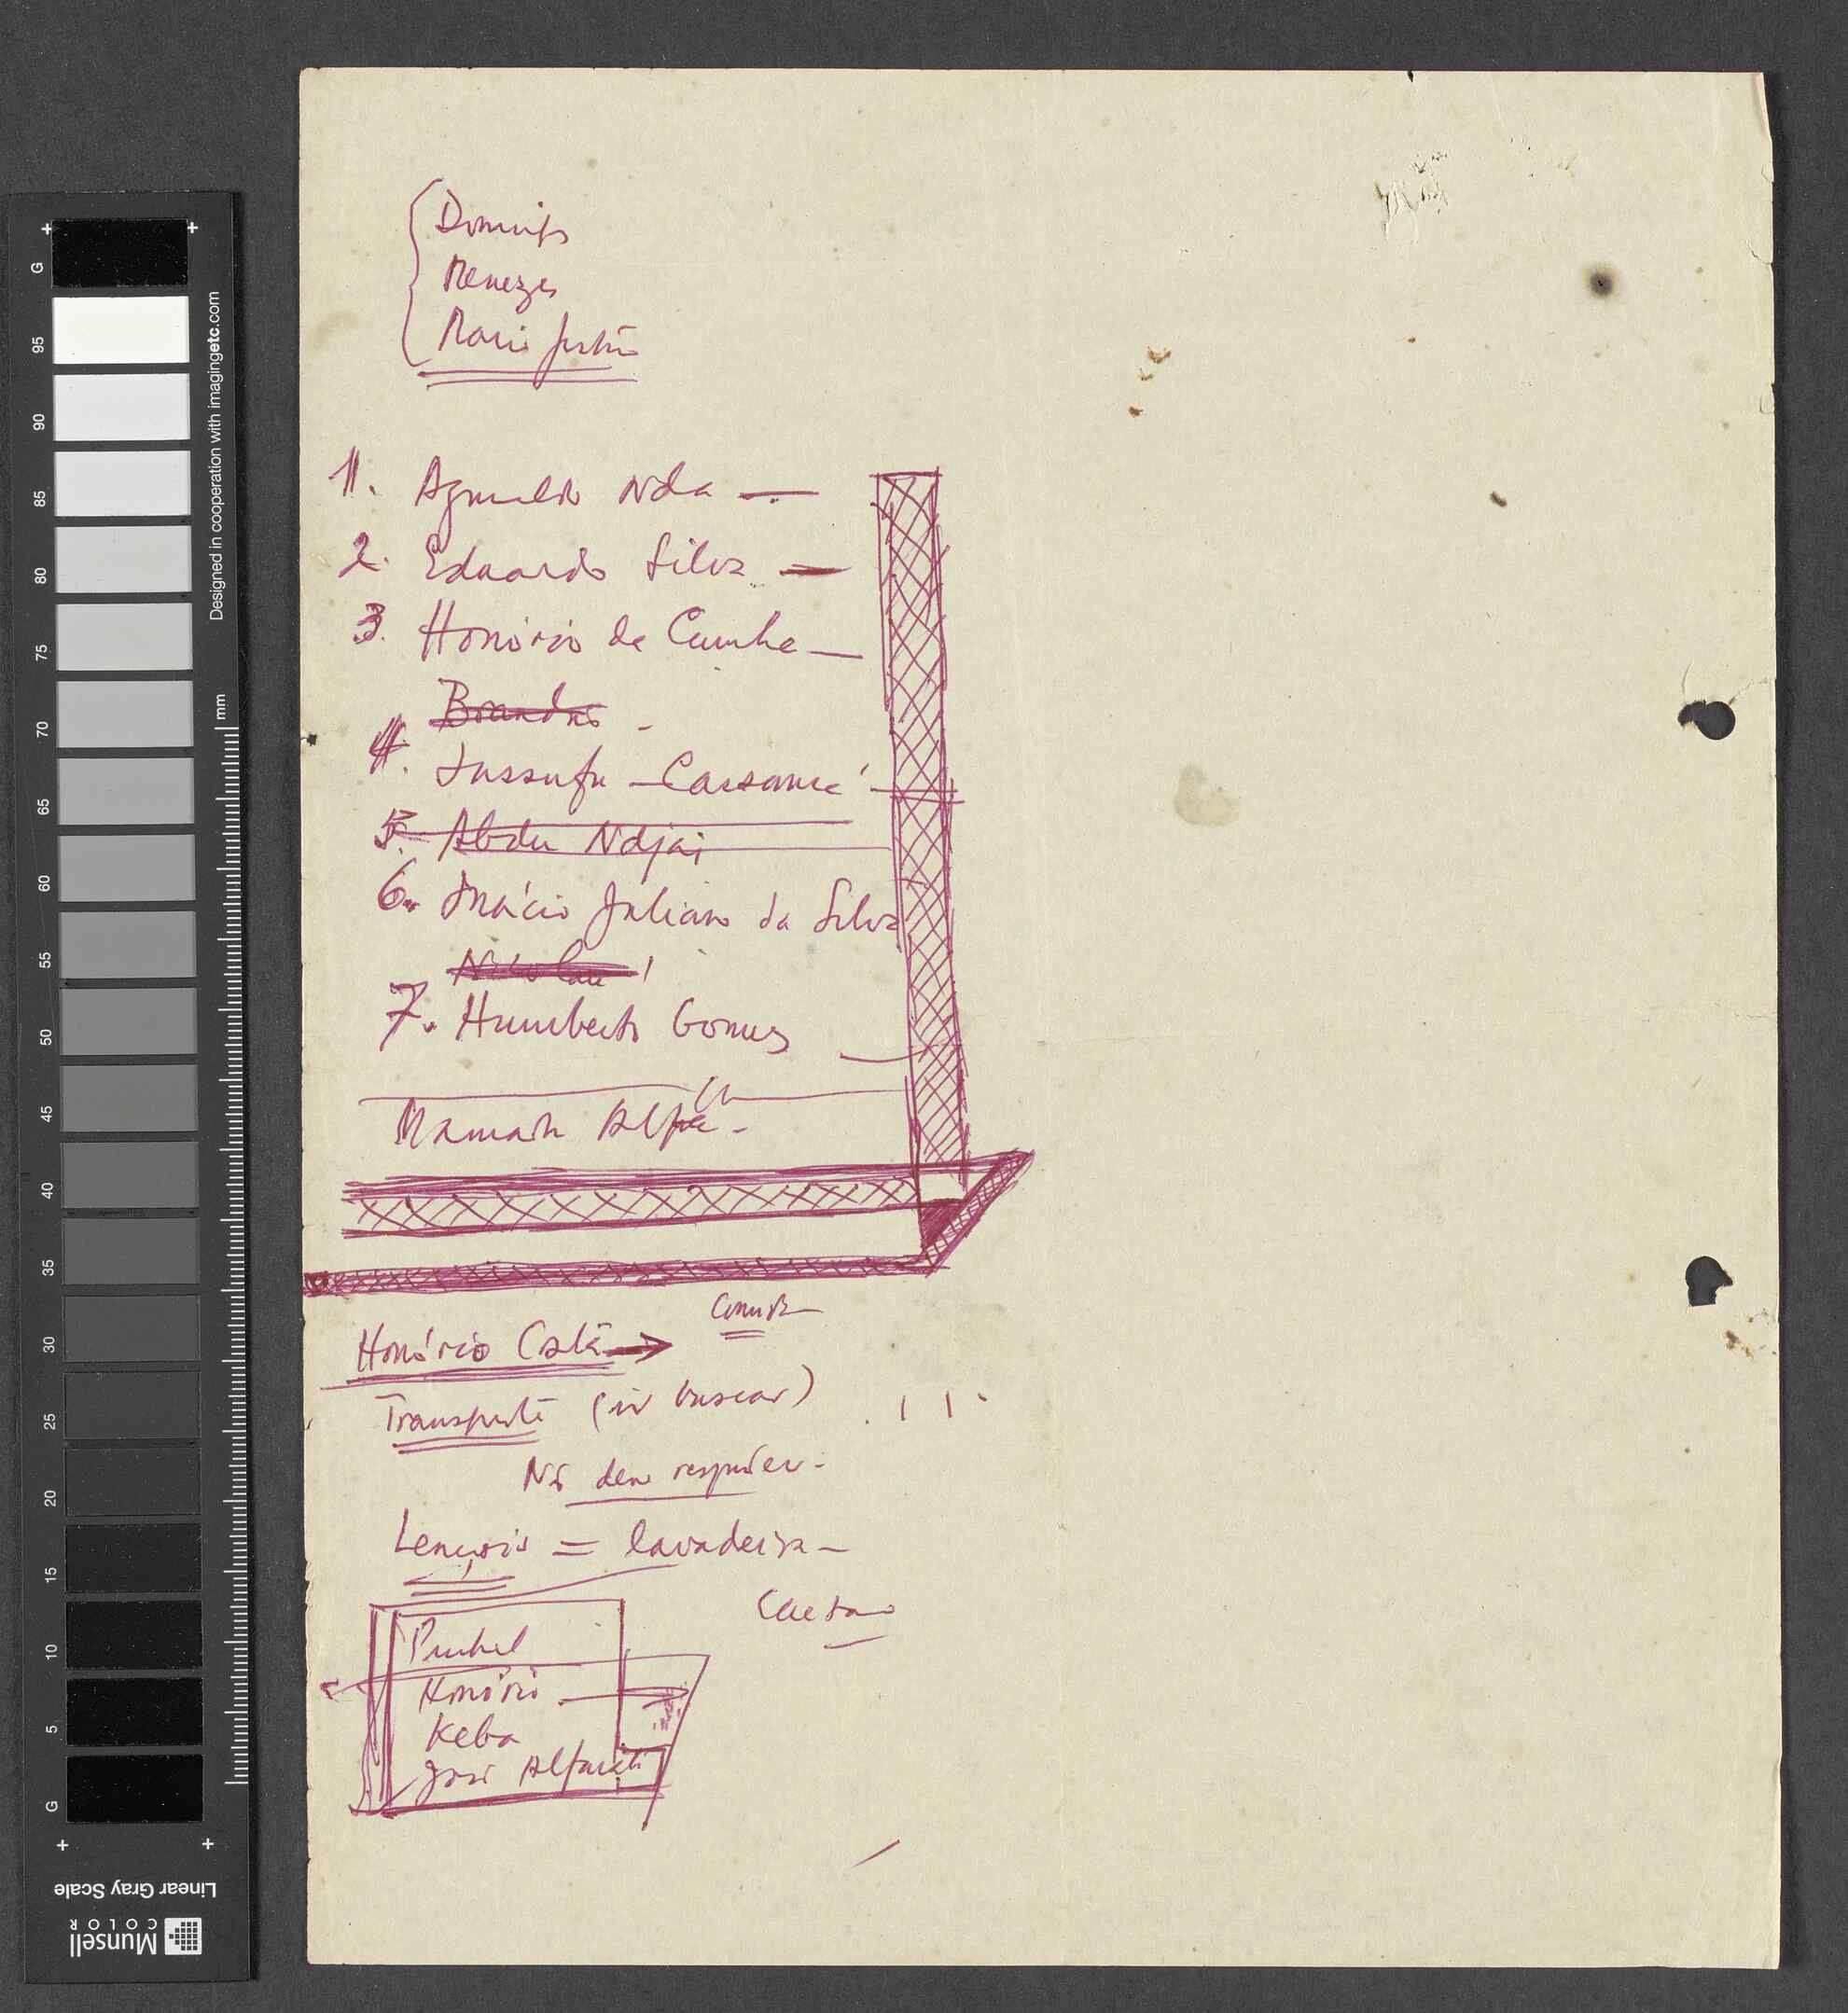 Domingos
Menezes
1. Agnaldo Nda —
2. Eduardo Silva —
3. Honório da Cunha —
Brandão -
4. Iussufu — Cassamá
5. Abdu Ndjai
6. Inácio Juliano da Silva
Nicolau
7. Humberto Gomes
Mamadu Alfa -
Comida
Honório Costa →
Transporte (ir buscar)
Nós deve responder -
Lençóis = lavadeira —
Caetano
Honório —
Keba
José
G
95
90
85
80
75
70
65
60
55
50
45
40
35
30
25
20
15
10
5
G
mm
Designed in cooperation with imagingetc.com
Linear Gray Scale
Munsell
COLOR